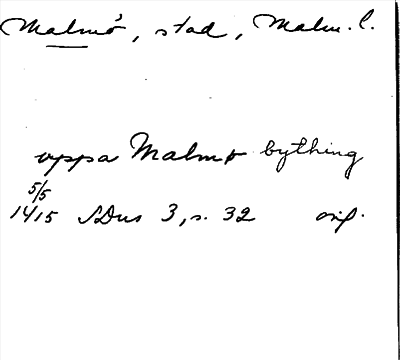 Malmö, stad, Malm. l.
uppa Malmø bything
5/5
1415 SDns 3, s. 32 orig.